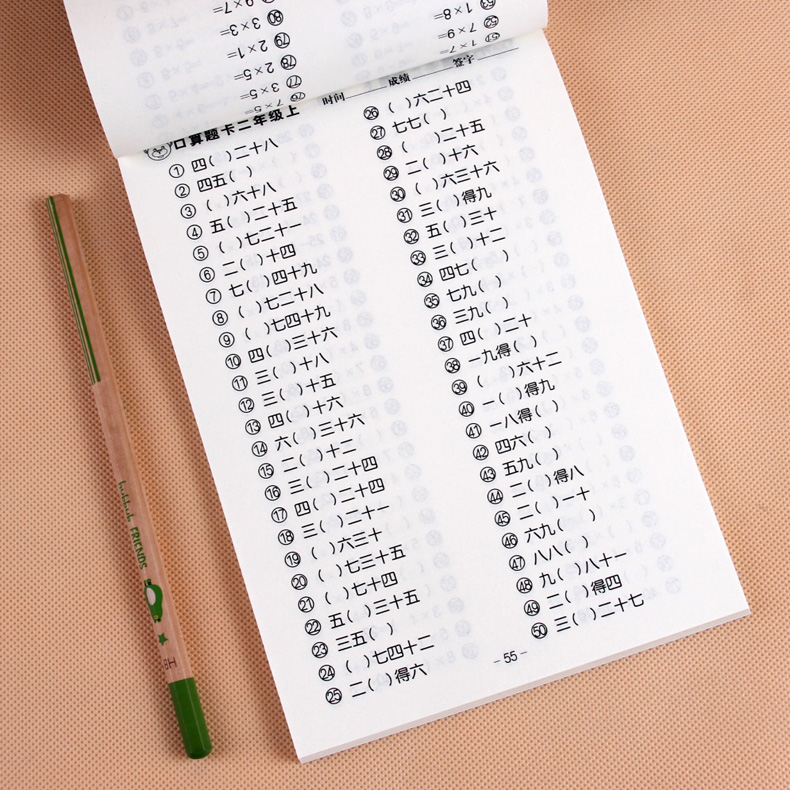 9×7=
⑧⓪ 3×3=
⑦⑨ 2×1=
⑦⑧ 2×5=
⑦⑦ 3×5=
⑦⑥ 7×5=
㊼ 1×8=
7×9=
1×7=
口算题卡二年级上 时间 成绩 签字
① 四( )二十八
② 四五( )
③ ( )六十八
④ 五( )二十五
⑤ ( )七二十一
⑥ 二( )十四
⑦ 七( )四十九
⑧ ( )七二十八
⑨ ( )七四十九
⑩ 四( )三十六
⑪ 三( )十八
⑫ 三( )十五
⑬ 四( )十六
⑭ 六( )三十六
⑮ 二( )十二
⑯ 三( )二十四
⑰ 四( )二十四
⑱ 三( )二十一
⑲ ( )六三十
⑳ ( )七三十五
㉑ ( )七十四
㉒ 五( )三十五
㉓ 三五( )
㉔ ( )七四十二
㉕ 二( )得六
㉖ ( )六二十四
㉗ 七七( )
㉘ ( )二十五
㉙ 二( )十六
㉚ ( )六三十六
㉛ 三( )得九
㉜ 五( )三十
㉝ 三( )十二
㉞ 四七( )
㉟ 七九( )
㊱ 三九( )
㊲ 四( )二十
㊳ 一九得( )
㊴ ( )六十二
㊵ 一( )得九
㊶ 一八得( )
㊷ 四六( )
㊸ 五九( )
㊹ 二( )得八
㊺ 二( )一十
㊻ 六九( )
㊼ 八八( )
㊽ 九( )八十一
㊾ 二( )得四
㊿ 三( )二十七
-55-
FRIENDS